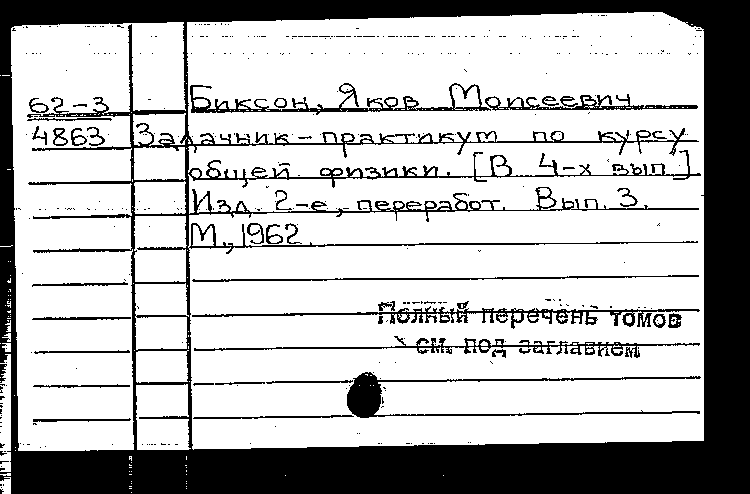 62-3 Биксон, Яков Моисеевич
4863 Задачник-практикум по курсу
общей физики. [В 4-х вып.]
Изд. 2-е, переработ. Вып. 3.
М., 1962.
Полный перечень томов
см. под заглавием